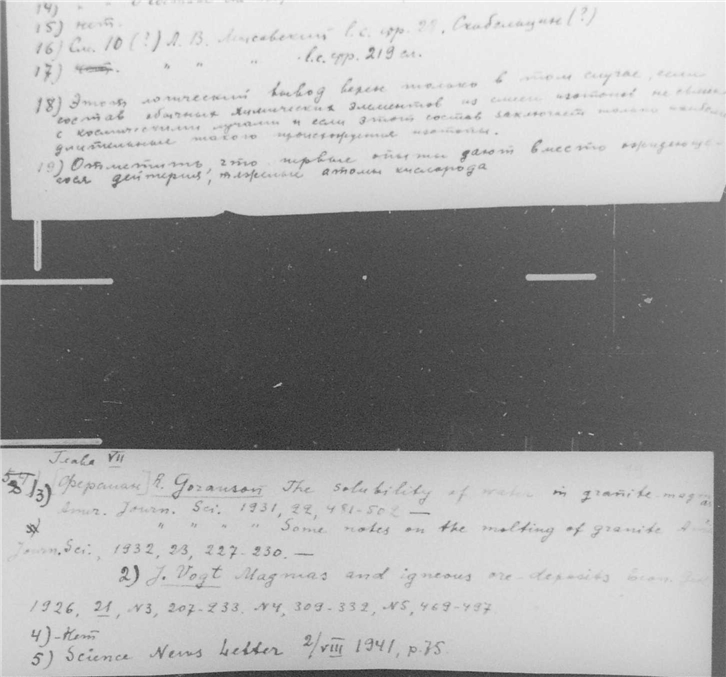 14) " "
15) нет.
16) См. 10 (?) Л. В. l.c. стр. 22. Скобельцын (?)
17) " " " l.c. стр. 219 сл.
18) Этот логический вывод верен только в том случае, если
состав обычных химических элементов из смеси изотопов не
с космическими лучами и если этот состав заключает только наиболее
длительные такого происхождения изотопы.
19) Отметить, что первые опыты дают вместо
ося дейтерия, тяжелые атомы кислорода
Глава VII
3) [Ферсман] R. Goranson The solubility of water in granite magmas
Amer. Journ. Sci. 1931, 22, 481-502 —
" " " " Some notes on the melting of granite
Journ. Sci., 1932, 23, 227-230. —
2) J. Vogt Magmas and igneous ore-deposits Econ.
1926, 21, N3, 207-233. N4, 309-332, N5, 469-497
4) - Нет
5) Science News Letter 2/VIII 1941, p. 75.